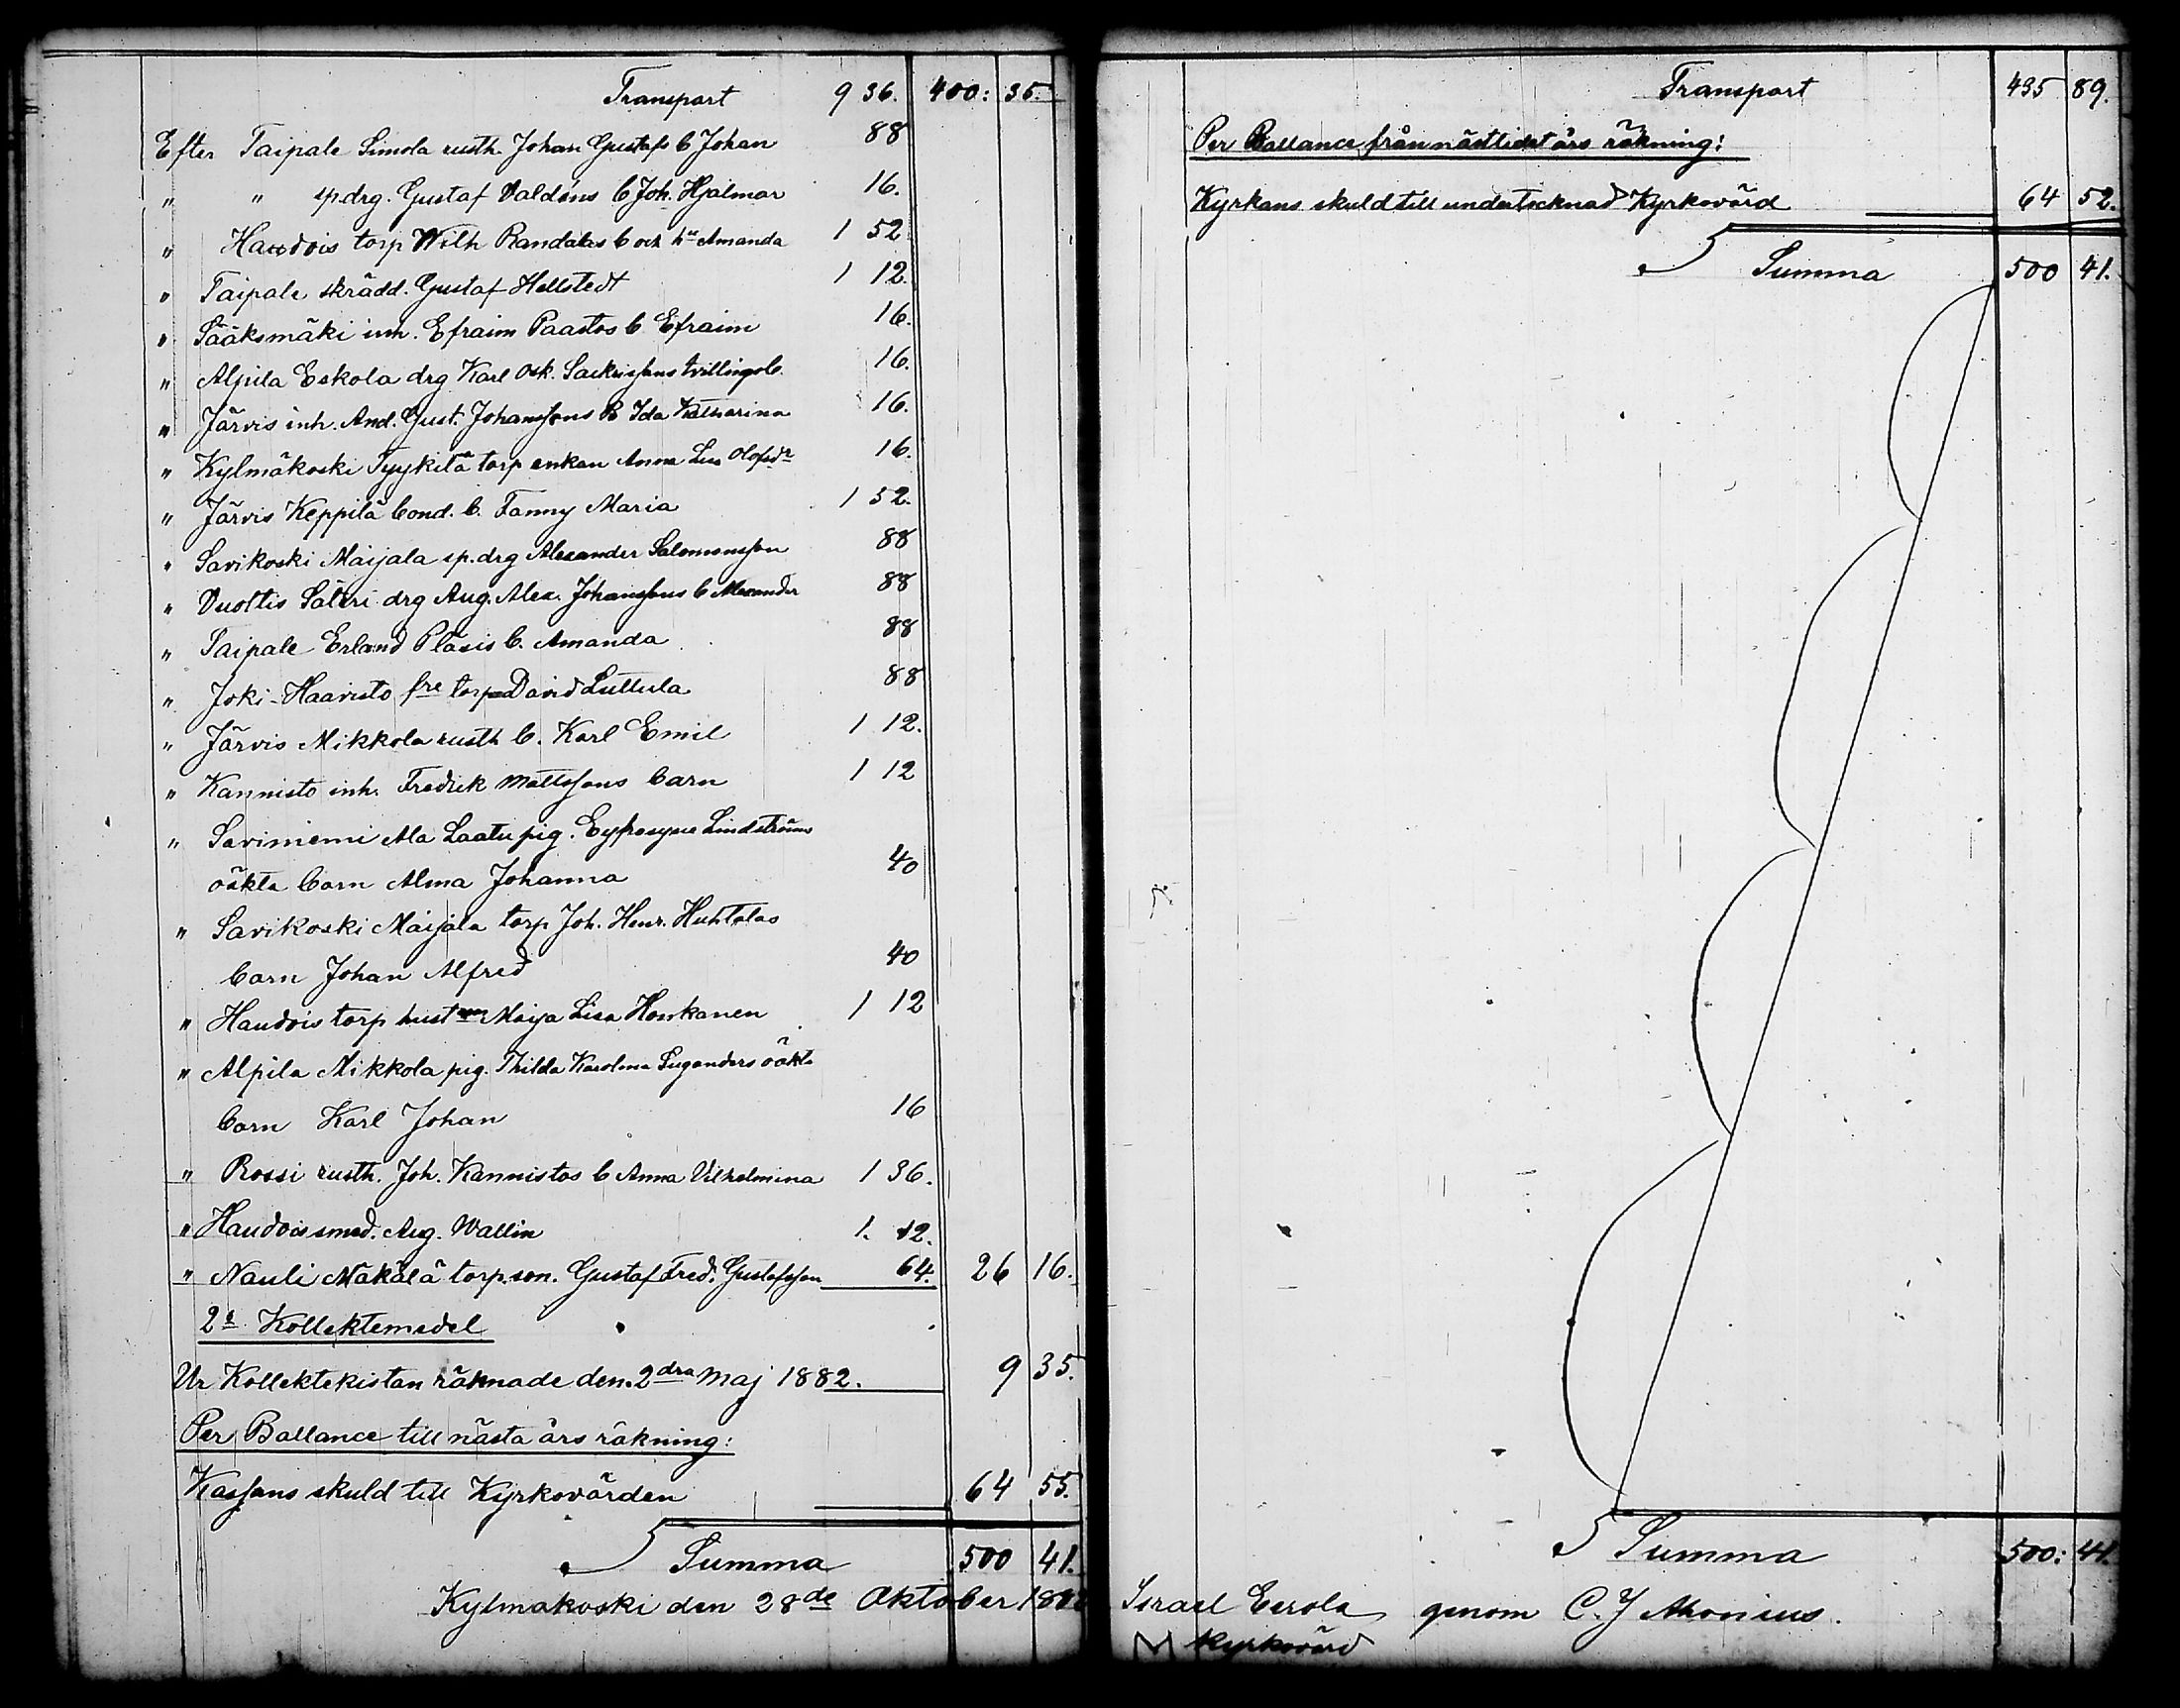 Transport 9 36. 400: 35.
Efter Taipale Simola rusth. Johan Gustafs b Johan 88
" " sp.drg. Gustaf Valdéns b Joh. Hjalmar 16.
" Haudois torp Wilh Randalas b och hu Amanda 1 52
" Taipale skrädd. Gustaf Hellstedt 1 12.
" Sääksmäki inh. Efraim Paastos b Efraim 16.
" Alpila Eskola drg Karl Osk. Sackrissons tvillingsb. 16.
" Järvis inh. And. Gust. Johanssons B Ida Katharina 16.
" Kylmäkoski Tyykilä torp enkan Anna Lisa Olofsdr 16.
" Järvis Keppilä bond. b. Fanny Maria 1 52.
" Savikoski Maijala sp.drg Alexander Salomonsson 88
" Vuoltis Säteri drg Aug. Alex. Johanssons b Alexander 88
" Taipale Erland Pläsis b. Amanda 88
" Joki-Haavisto fre torp David Luttula 88
" Järvis Mikkola rusth b. Karl Emil 1 12.
" Kannisto inh. Fredrik Mattssons barn 1 12
" Saviniemi Ala Laatu pig. Eyfrosyne Lindströms
oäkta barn Alma Johanna 40
" Savikoski Maijala torp Joh. Henr. Huhtalas
barn Johan Alfred 40
" Haudois torp hust Maija Lisa Honkanen 1 12
" Alpila Mikkola pig. Thilda Karolina Suganders oäkta
barn Karl Johan 16
" Rossi rusth. Joh. Kannistos b Anna Vilhelmina 1 36.
" Haudois smed. Aug. Wallin 1. 12.
" Nauli Mäkälä torp.son. Gustaf Fred. Gustafsson 64. 26 16.
2o Kollektemedel
Ur Kollektekistan räknade den 2dra Maj 1882. 9 35.
Per Ballance till nästa års räkning:
Kassans skuld till Kyrkovärden 64 55.
Summa 500 41.
Kylmäkoski den 28de Oktober 1882
Transport 435 89.
Per Ballance från nästlidet års räkning:
Kyrkans skuld till undertecknad Kyrkovärd 64 52.
Summa 500 41.
Summa 500: 41.
Israel Eerola genom C. J Ahonius.
Kyrkovärd